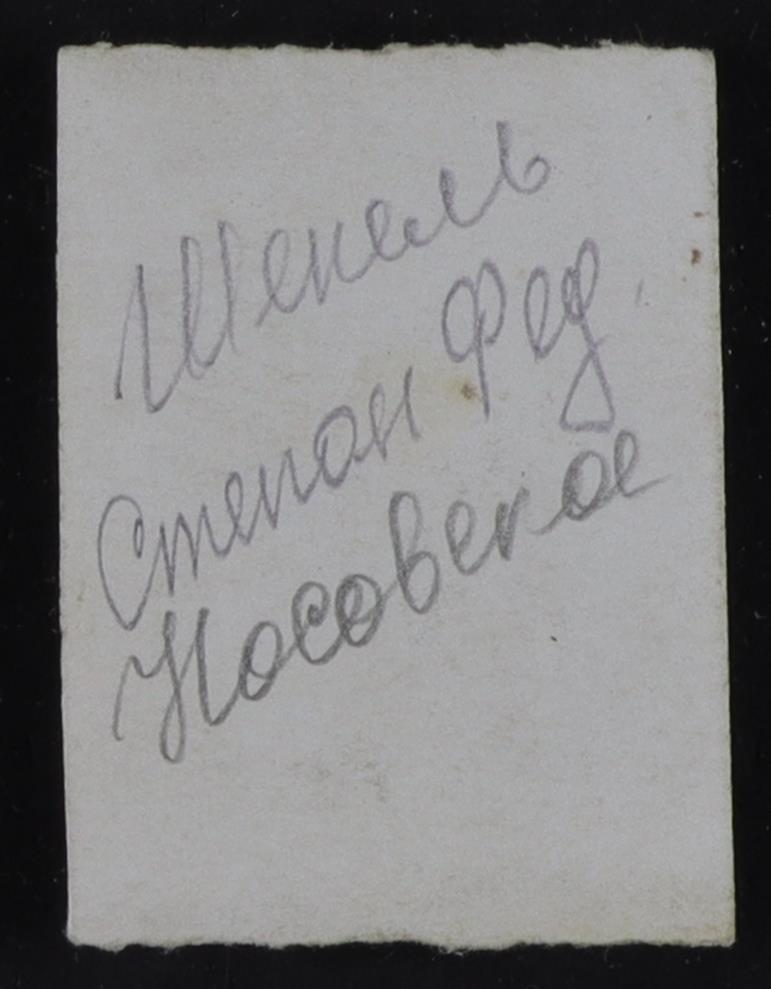 Шекель
Степан Фед.
Носовское